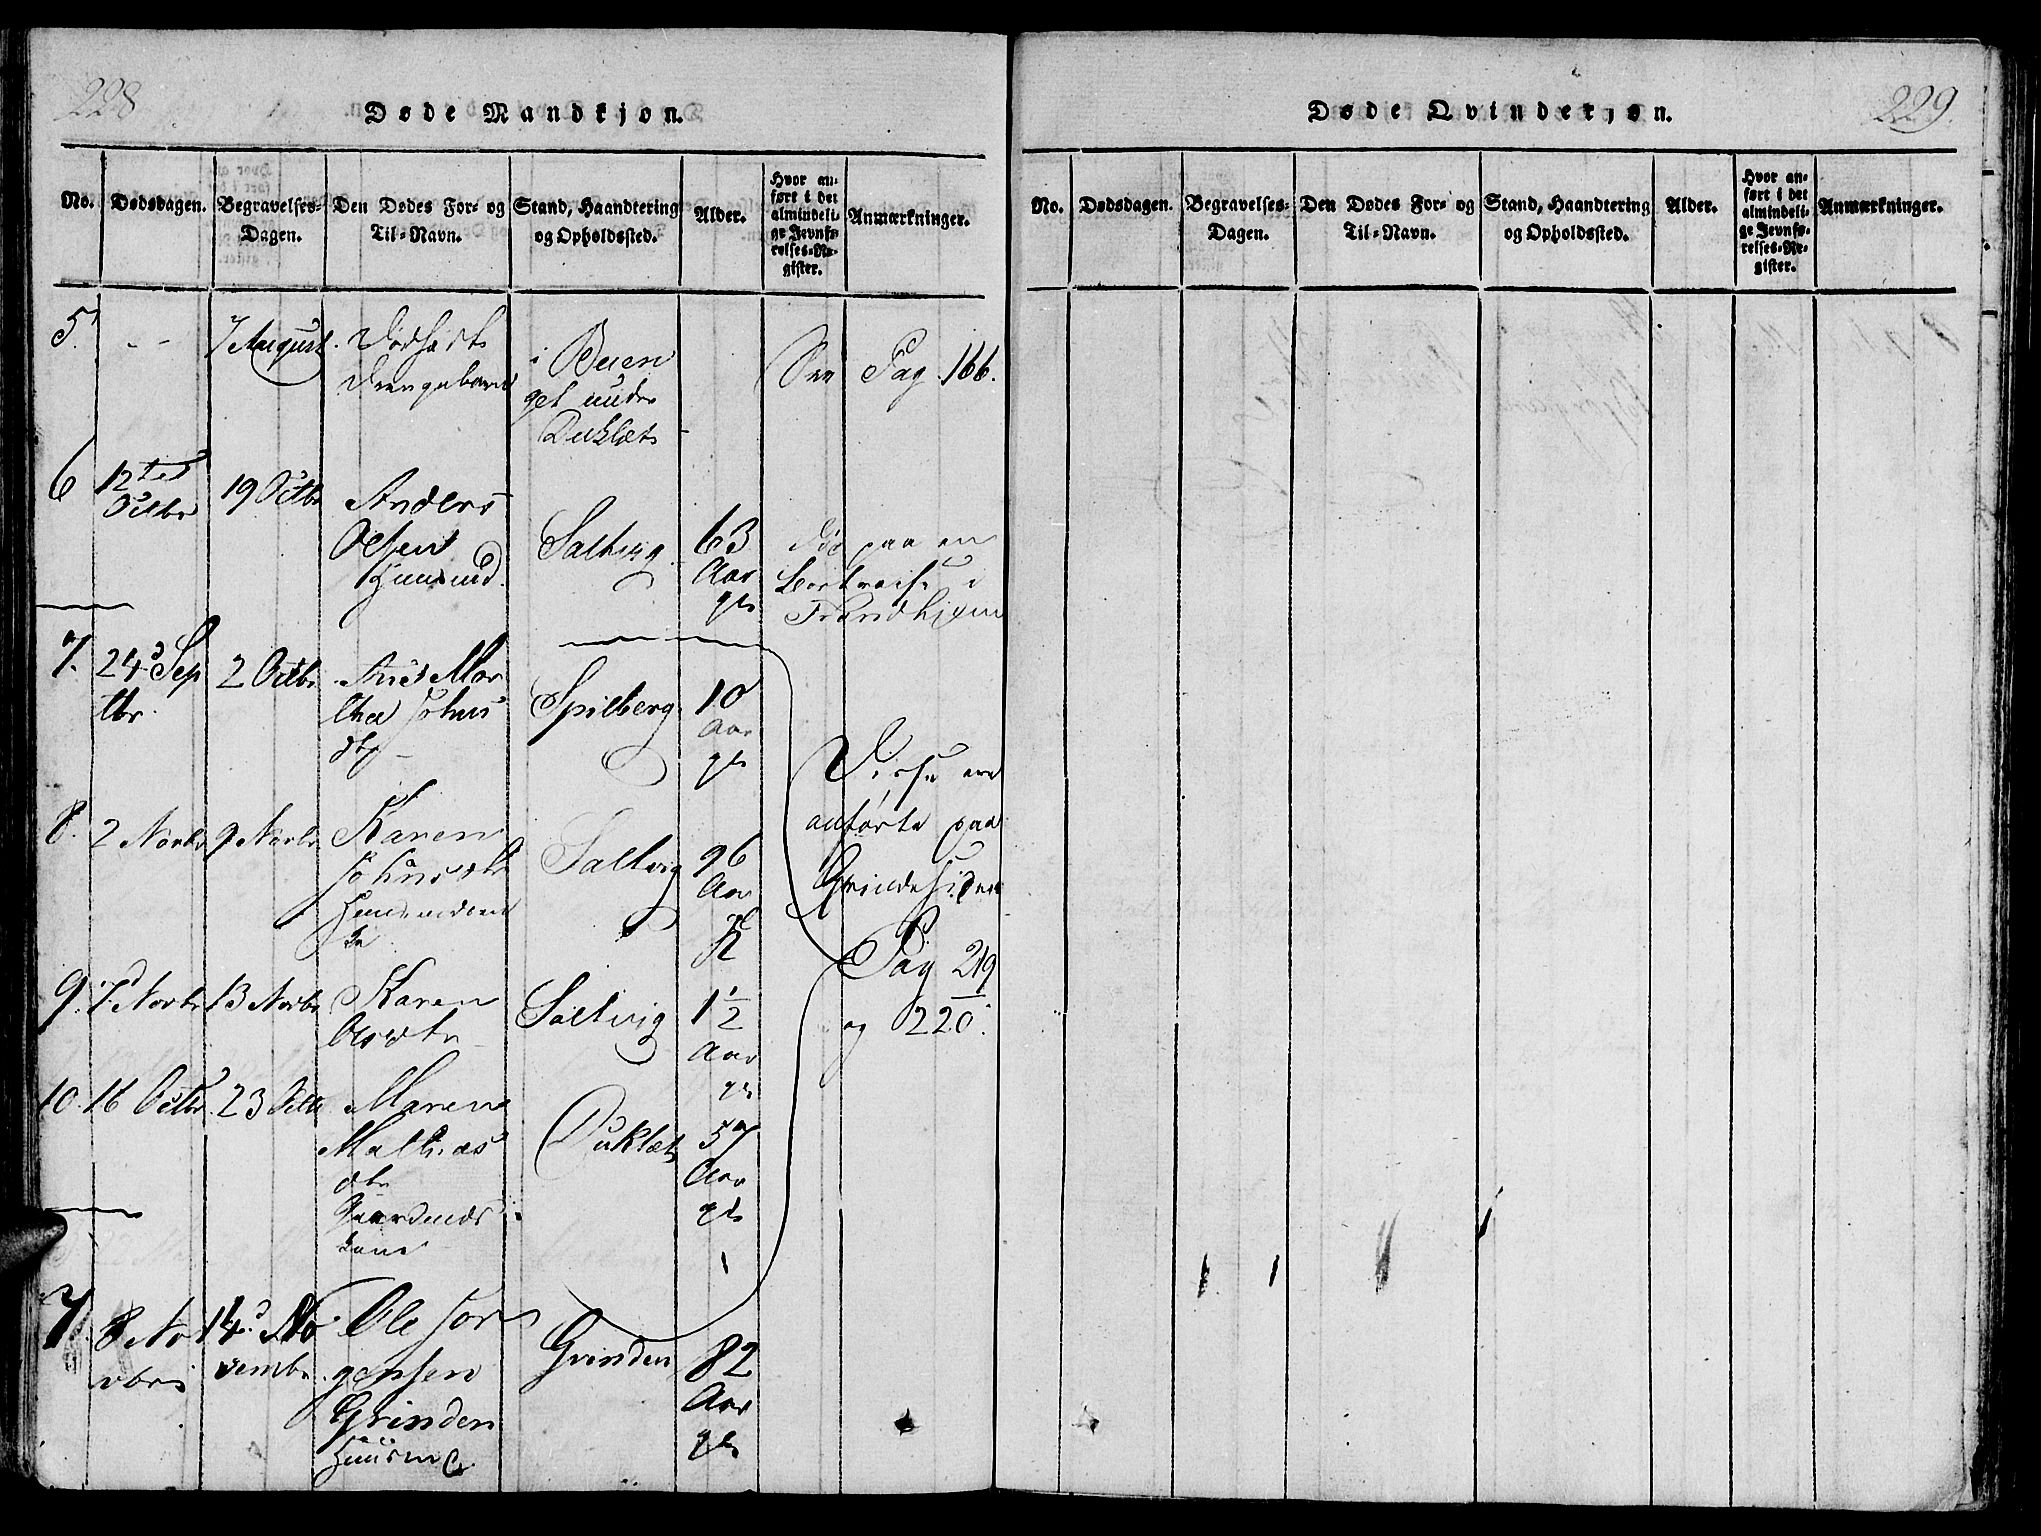 228
Døde Mandkjøn.
No. Dødsdagen. Begravelses-Dagen. Den Dødes For- og Til-Navn. Stand, Haandtering og Opholdssted. Alder. Hvor anført i det almindelige Jevnførelses-Register. Anmærkninger.
5. - - 7 August. Dødfødt i Buen See Pag. 166.
Drengebarn get under
Duklæt
6 12ted 19 Octbr Anders
Octbr Olsen Saltvig 63 Død paa en
Huusmd. Aar Bortreise i
gl. Trondhjem
7. 24d Sep 2 Octbr Ane Mar
tbr. tha Johns Spilberg 10
dtr Aar
gl Disse ere
8. 2 Novbr 9 Novbr Karen anførte paa
Johnsdtr Saltvig 96 Qvindesiden
Huusmdens Aar Pag 219
ke
9. 7d Novbr 13 Novbr Karen Saltvig 1½ og 220.
Olsdtr Aar
gl
10. 16 Octbr. 23 Octbr Maren
Mathias Duklæt 57
dtr Aar
Gaardmds gl
kone
7. 8 No 14d No Ole Jør Grinden 82
vbr vembr. gensen Aar
Grinden gl.
Huusmd.
229.
Døde Qvindekjøn.
No. Dødsdagen. Begravelses-Dagen. Den Dødes For- og Til-Navn. Stand, Haandtering og Opholdssted. Alder. Hvor anført i det almindelige Jevnførelses-Register. Anmærkninger.